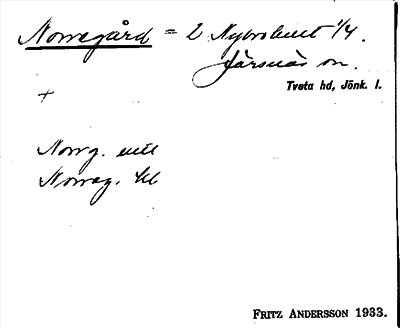 Norregård = 2 Nybohult 1/4.
Järsnäs sn.
Tveta hd, Jönk. l.
+
Norrg. mtl
Norreg. kl
FRITZ ANDERSSON 1933.